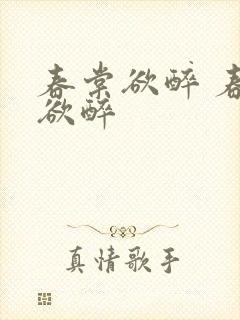 春棠欲醉 春
欲醉
真情歌手